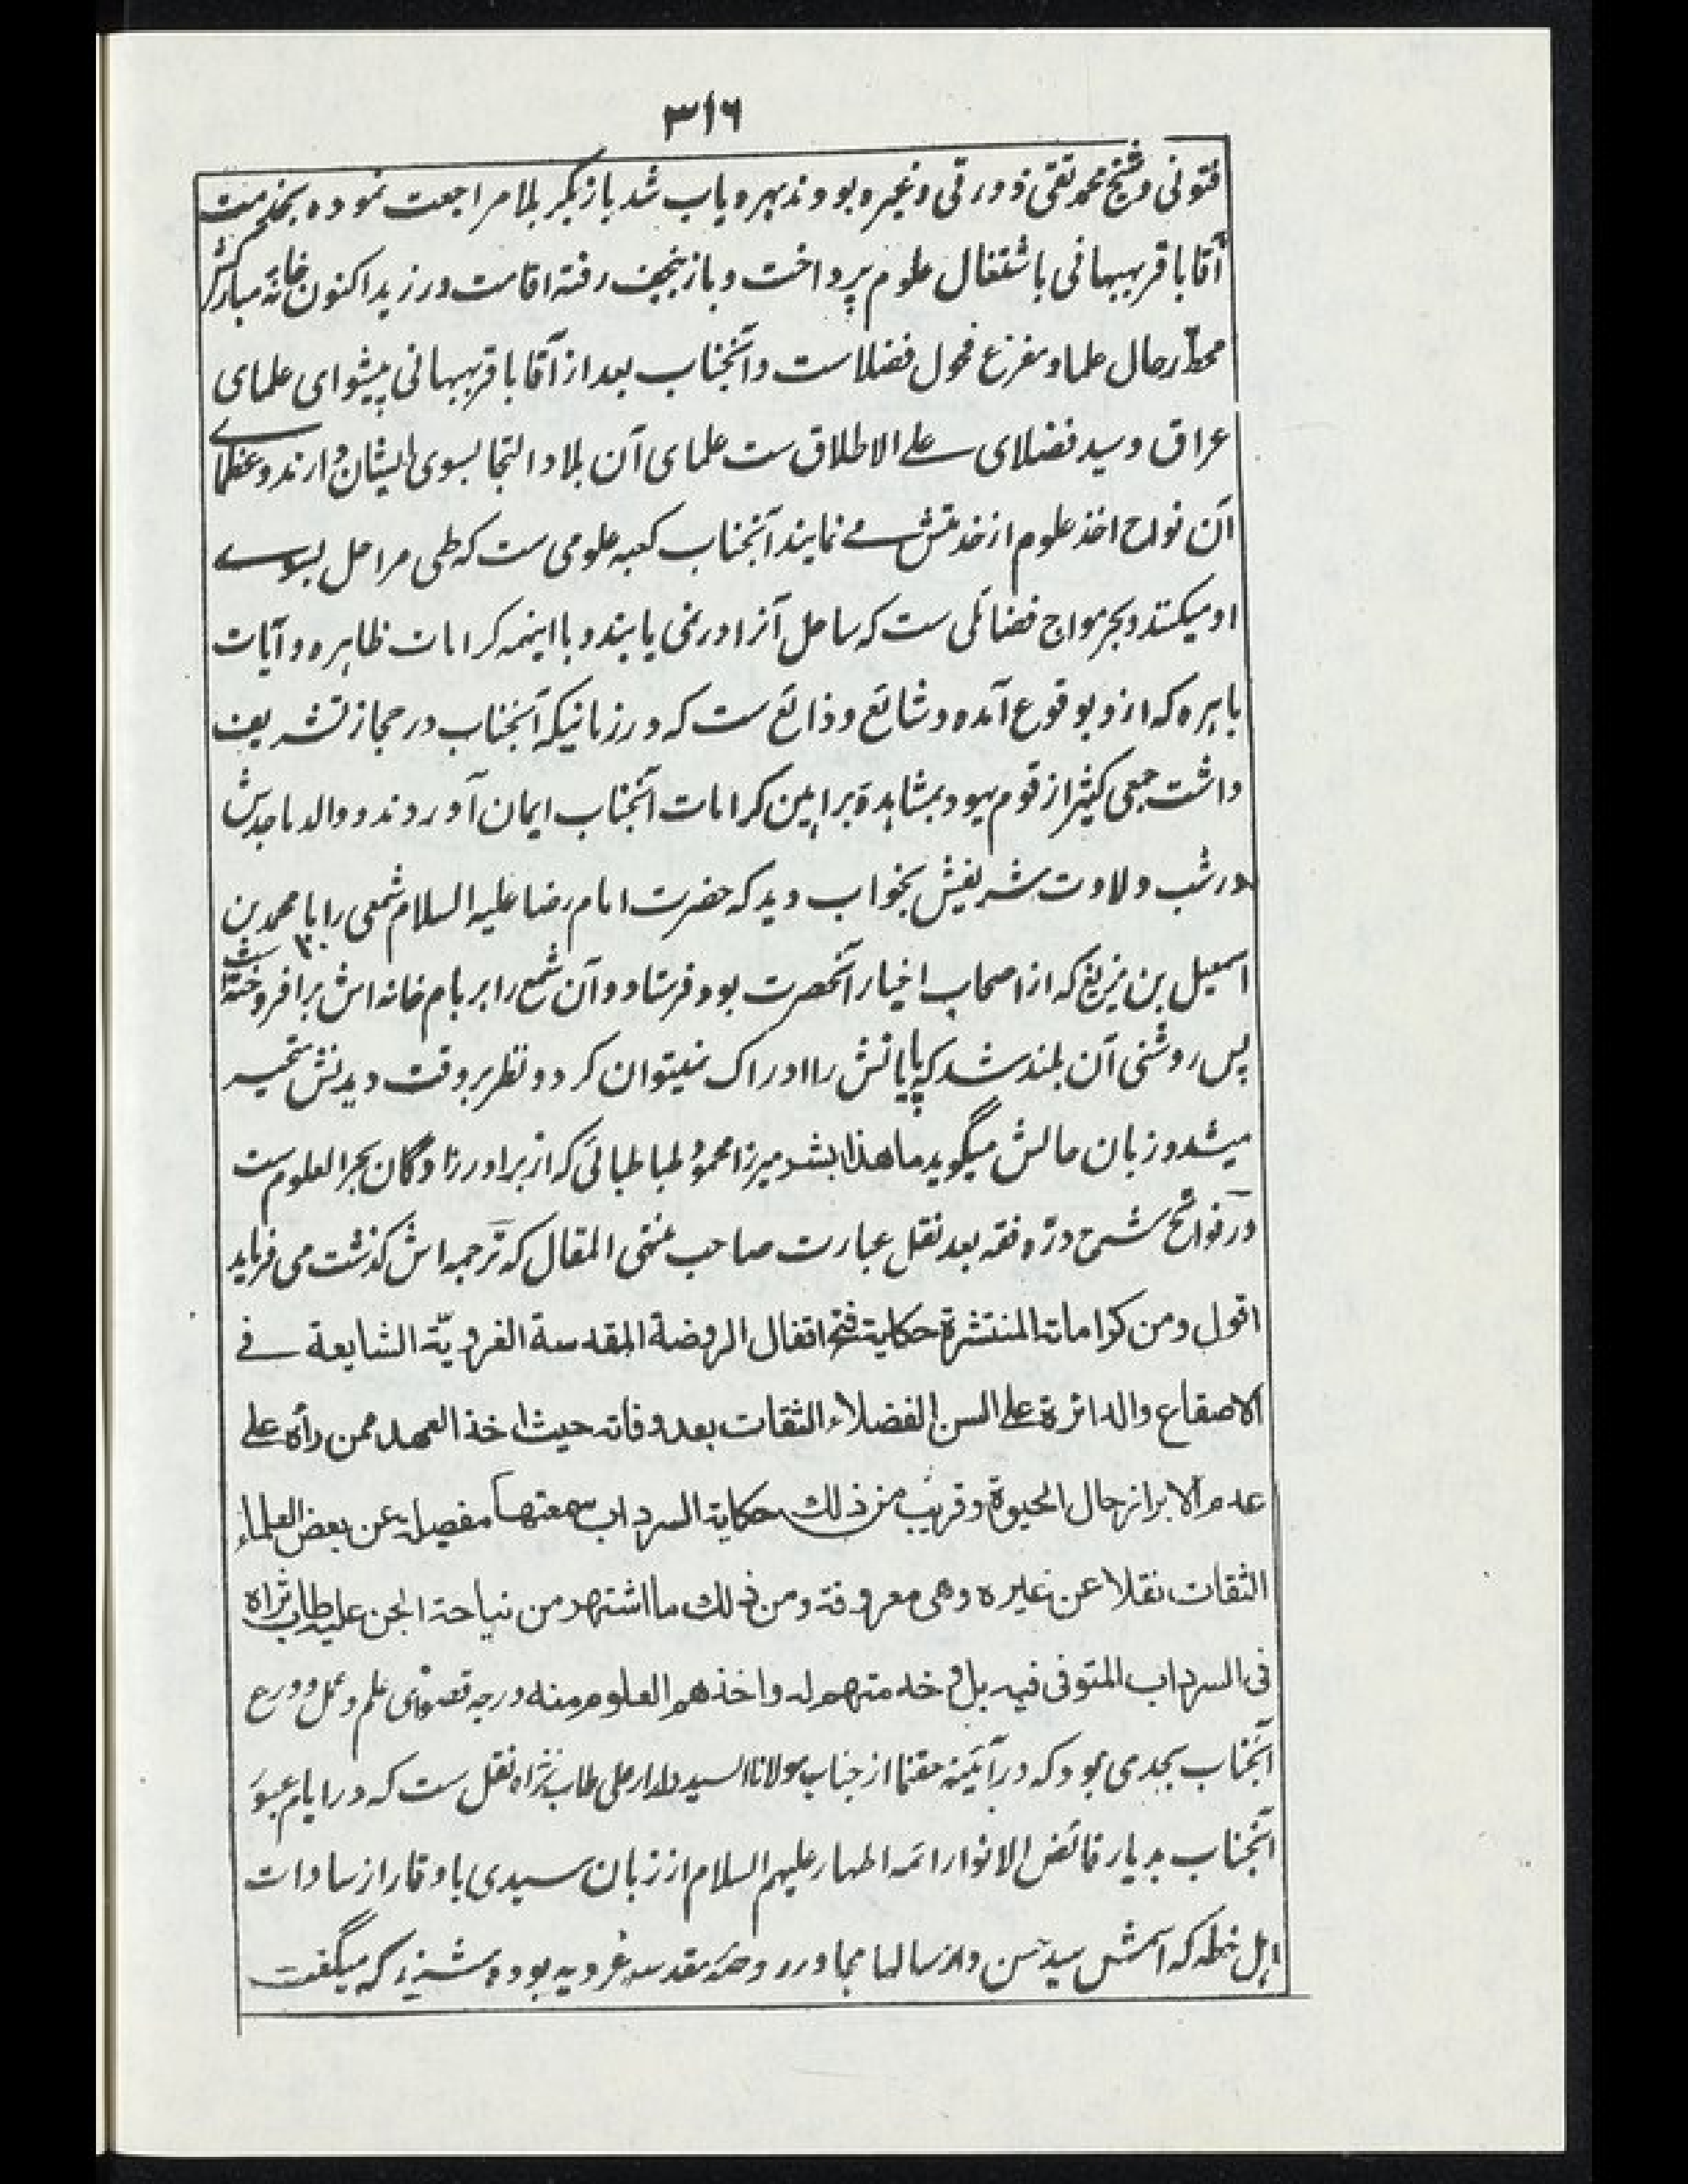 ٣١٦
فتونی و شیخ محمد تقی دورقی و غیره بودند بهره یاب شد باز بکربلا مراجعت نموده بخدمت
آقا باقر بهبهانی باشتغال علوم پرداخت و باز بنجف رفته اقامت ورزید اکنون خانهٔ مبارکش
محط رحال علما و مفزع فحول فضلاست و آنجناب بعد از آقا باقر بهبهانی پیشوای علمای
عراق و سید فضلای علی الاطلاق ست علمای آن بلاد التجا بسوی ایشان دارند و عظمای
آن نواح اخذ علوم از خدمتش می نمایند آنجناب کعبه علومی ست که طی مراحل بسوی
او میکنند و بحر مواج فضائلی ست که ساحل آنرا در نمی یابند و با اینهمه کرامات ظاهره و آیات
باهره که ازو بوقوع آمده و شائع و ذائع ست که در زمانیکه آنجناب در حجاز تشریف
داشت جمعی کثیر از قوم یهود بمشاهدهٔ براهین کرامات آنجناب ایمان آوردند و والد ماجدش
در شب ولادت شریفش بخواب دید که حضرت امام رضا علیه السلام شمعی را با محمد بن
اسمعیل بن بزیع که از اصحاب اخیار آنحضرت بود فرستاد و آن شمع را بر بام خانه اش برافروخته است
پس روشنی آن بلند شد که پایانش را ادراک نمیتوان کرد و نظر بر وقت دیدنش متحیر
میشد و زبان حالش میگوید ما هذا بشر میرزا محمود طباطبائی که از برادرزادگان بحر العلوم ست
در فواتح شرح درّه فقه بعد نقل عبارت صاحب منتهی المقال که ترجمه اش گذشت می فرماید
اقول ومن کراماته المنتشرة حکایة فتح اقفال الروضة المقدسة الغرویّة الشایعة فی
الاصقاع والدائرة علی السن الفضلاء الثقات بعد وفاته حیث اخذ العهد ممن رأه علی
عدم الابراز حال الحیوة وقریب من ذلک حکایة السرداب سمعتها مفصلة عن بعض العلماء
الثقات نقلا عن غیره وهی معروفة ومن ذلک ما اشتهر من نیاحة الجن علیه طاب ثراه
فی السرداب المتوفی فیه بل و خدمتهم له واخذهم العلوم منه درجه قصوای علم و عمل و ورع
آنجناب بجدی بود که در آئینه حقنما از جناب مولانا السید دلدار علی طاب ثراه نقل ست که در ایام عبور
آنجناب بدیار فائض الانوار ائمه اطهار علیهم السلام از زبان سیدی باوقار از سادات
اهل خطه که اسمش سید حسن و از سالها مجاور روضهٔ مقدسه غرویه بوده شنیدند که میگفت